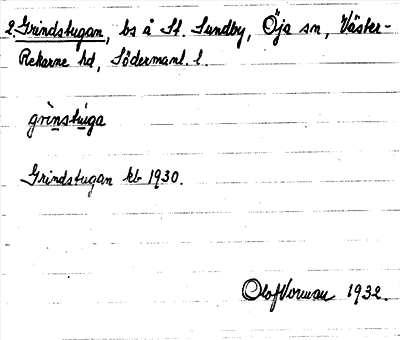 2 Grindstugan, bs å St. Sundby, Öja sn, Väster-
Rekarne hd, Södermanl. l.
grinstuga
Grindstugan kb 1930.
Olof Vorman 1932.